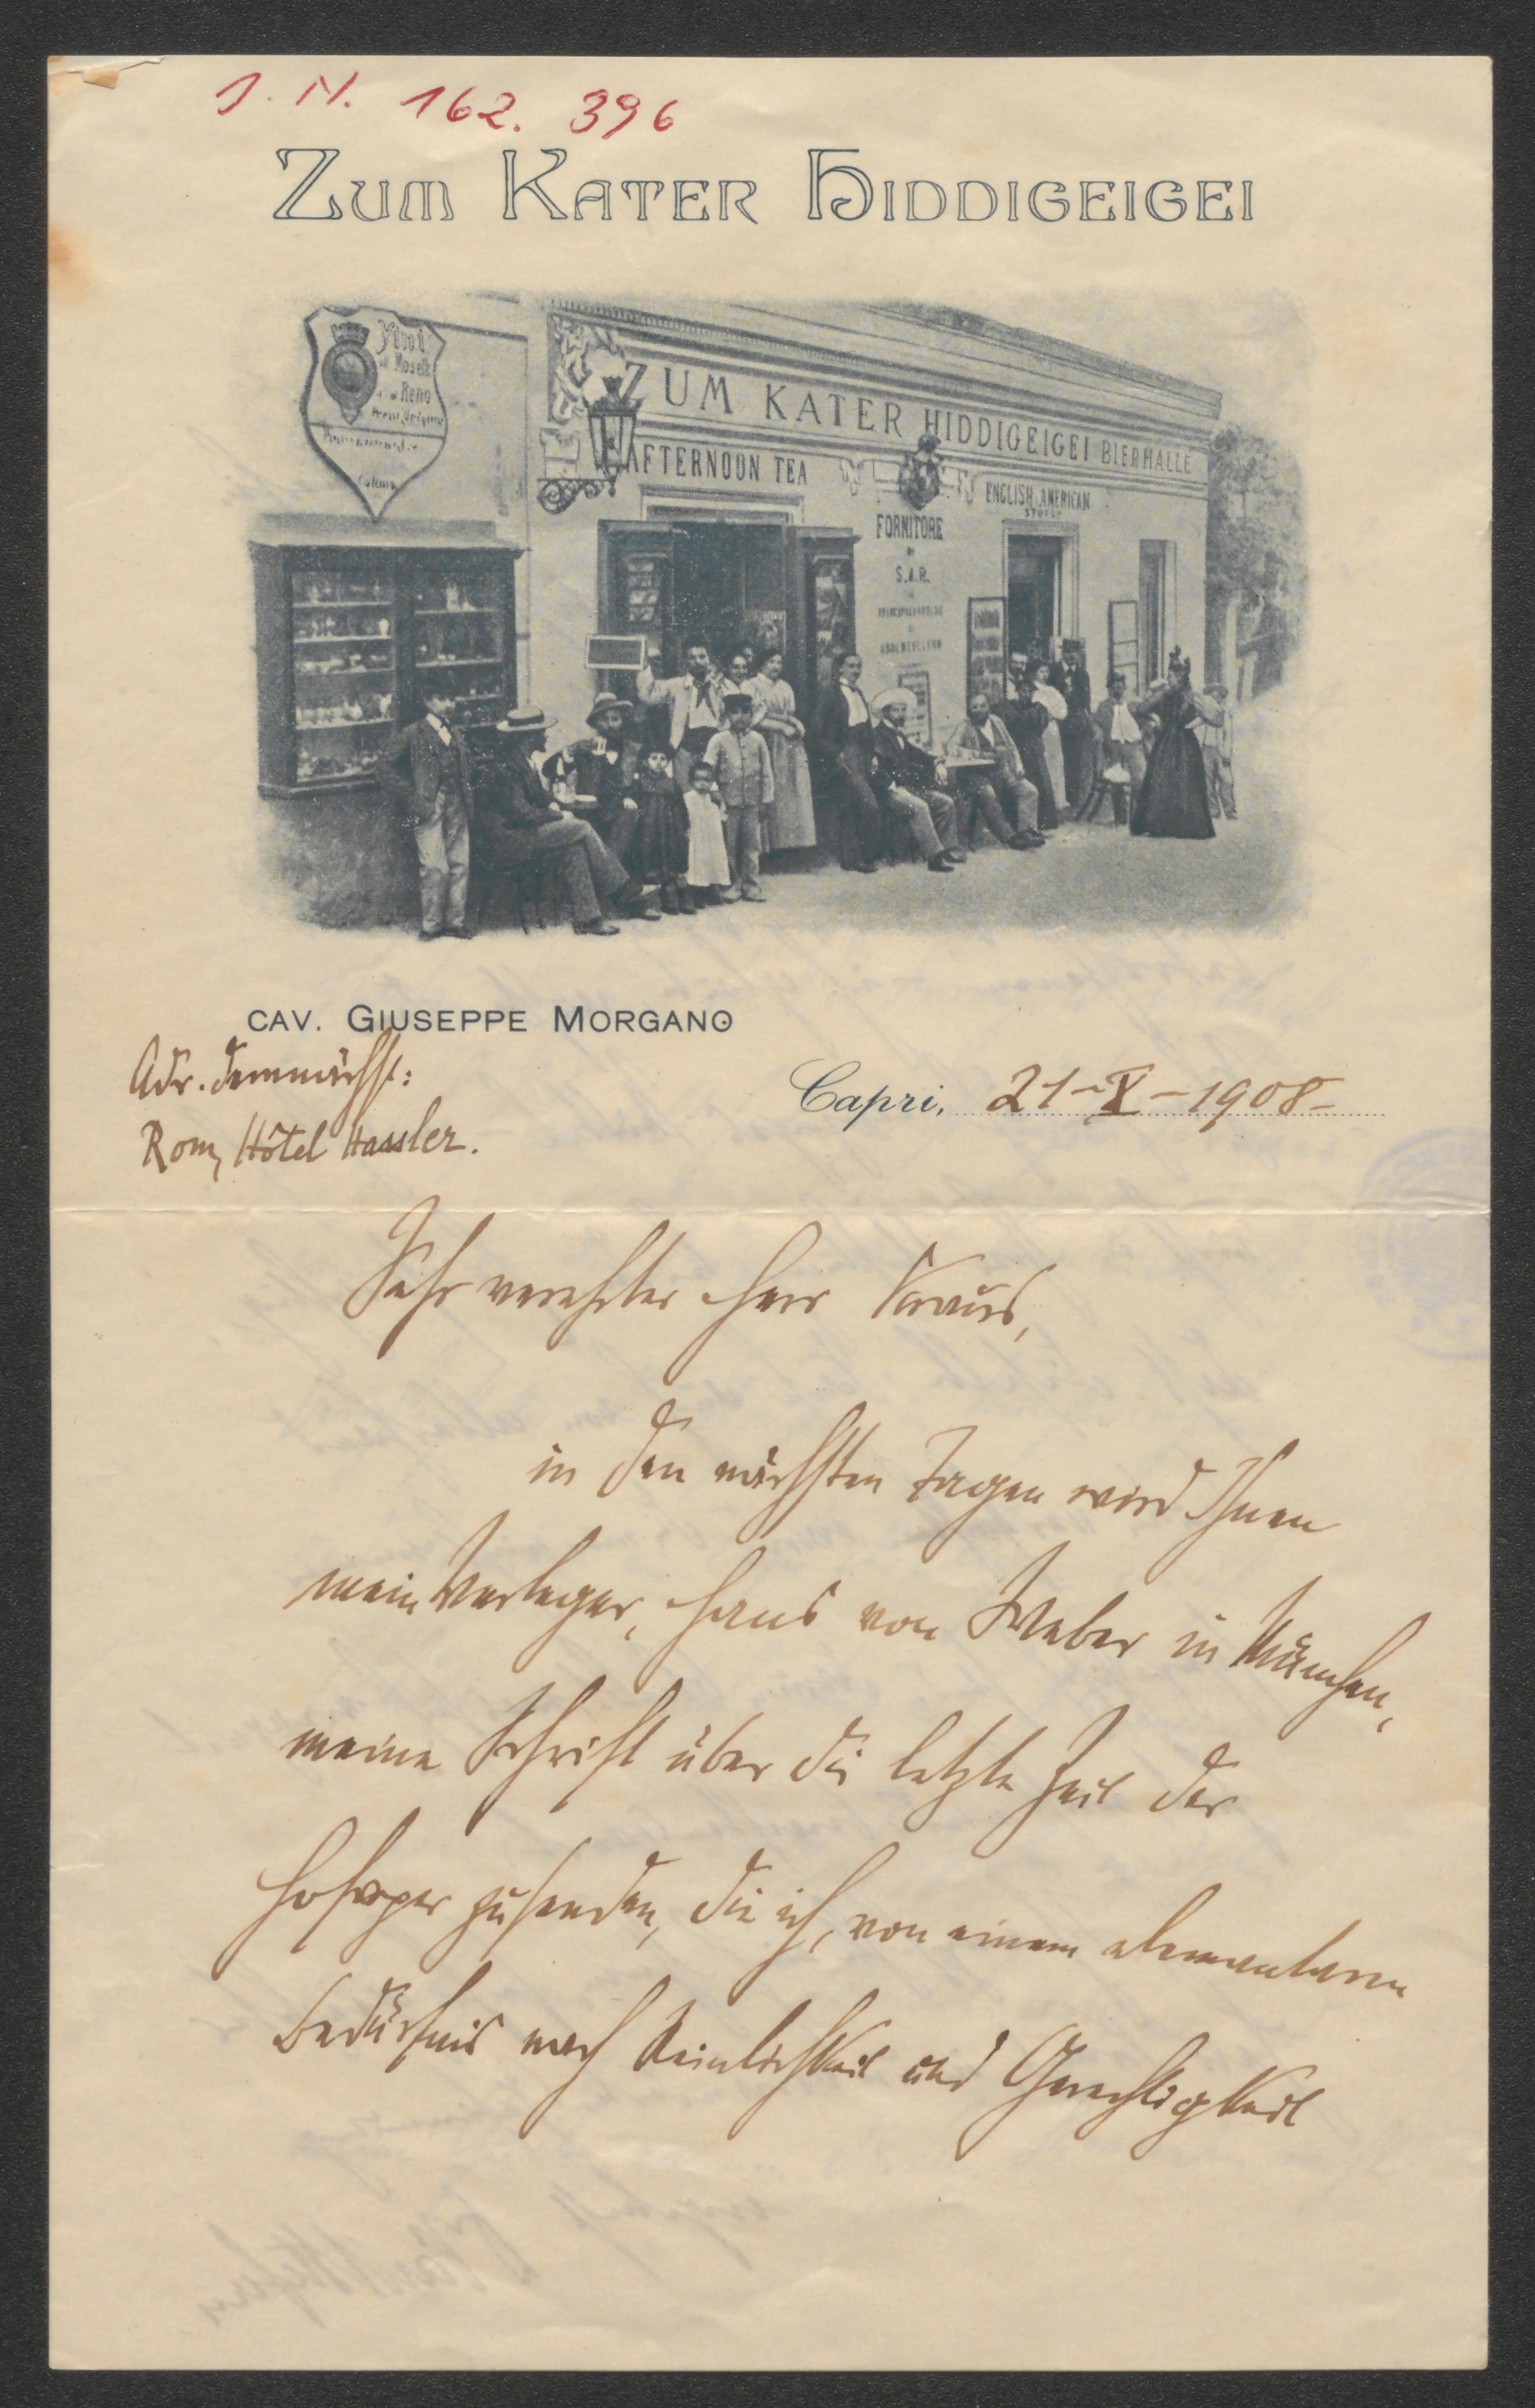 J. N. 162. 396
ZUM KATER HIDDIGEIGEI
Vini
Mosella
Reno
ZUM KATER HIDDIGEIGEI BIERHALLE
AFTERNOON TEA
ENGLISH AMERICAN
STORES
FORNITORE
DI
S.A.R.
CAV. GIUSEPPE MORGANO
Adr. demnächst:
Rom, Hôtel Hassler.
Capri, 21-X-1908-
Sehr verehrter Herr Kraus,
in den nächsten Tagen wird Ihnen
mein Verleger, Hans von Weber in München,
meine Schrift über die letzte Zeit der
Hofoper zusenden, die ich, von einem elementaren
Bedürfnis nach Reinlichkeit und Gerechtigkeit